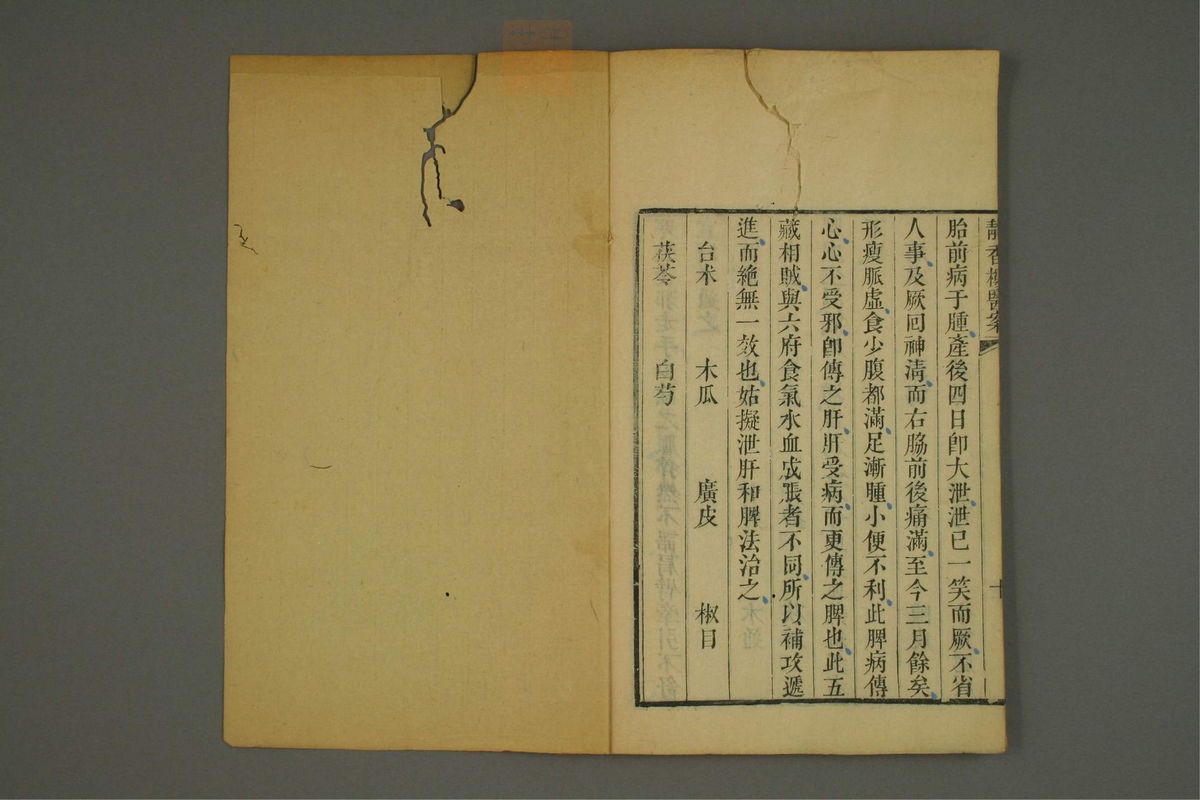 靜香樓醫案
十
胎前病子腫產後四日卽大泄泄已一笑而厥不省
人事及厥回神清而右脇前後痛滿至今三月餘矣
形瘦脈虛食少腹都滿足漸腫小便不利此脾病傳
心心不受邪卽傳之肝肝受病而更傳之脾也此五
藏相賊與六府食氣水血成脹者不同所以補攻遞
進而絶無一效也姑擬泄肝和脾法治之
台朮 木瓜 廣皮 椒目
茯苓 白芍